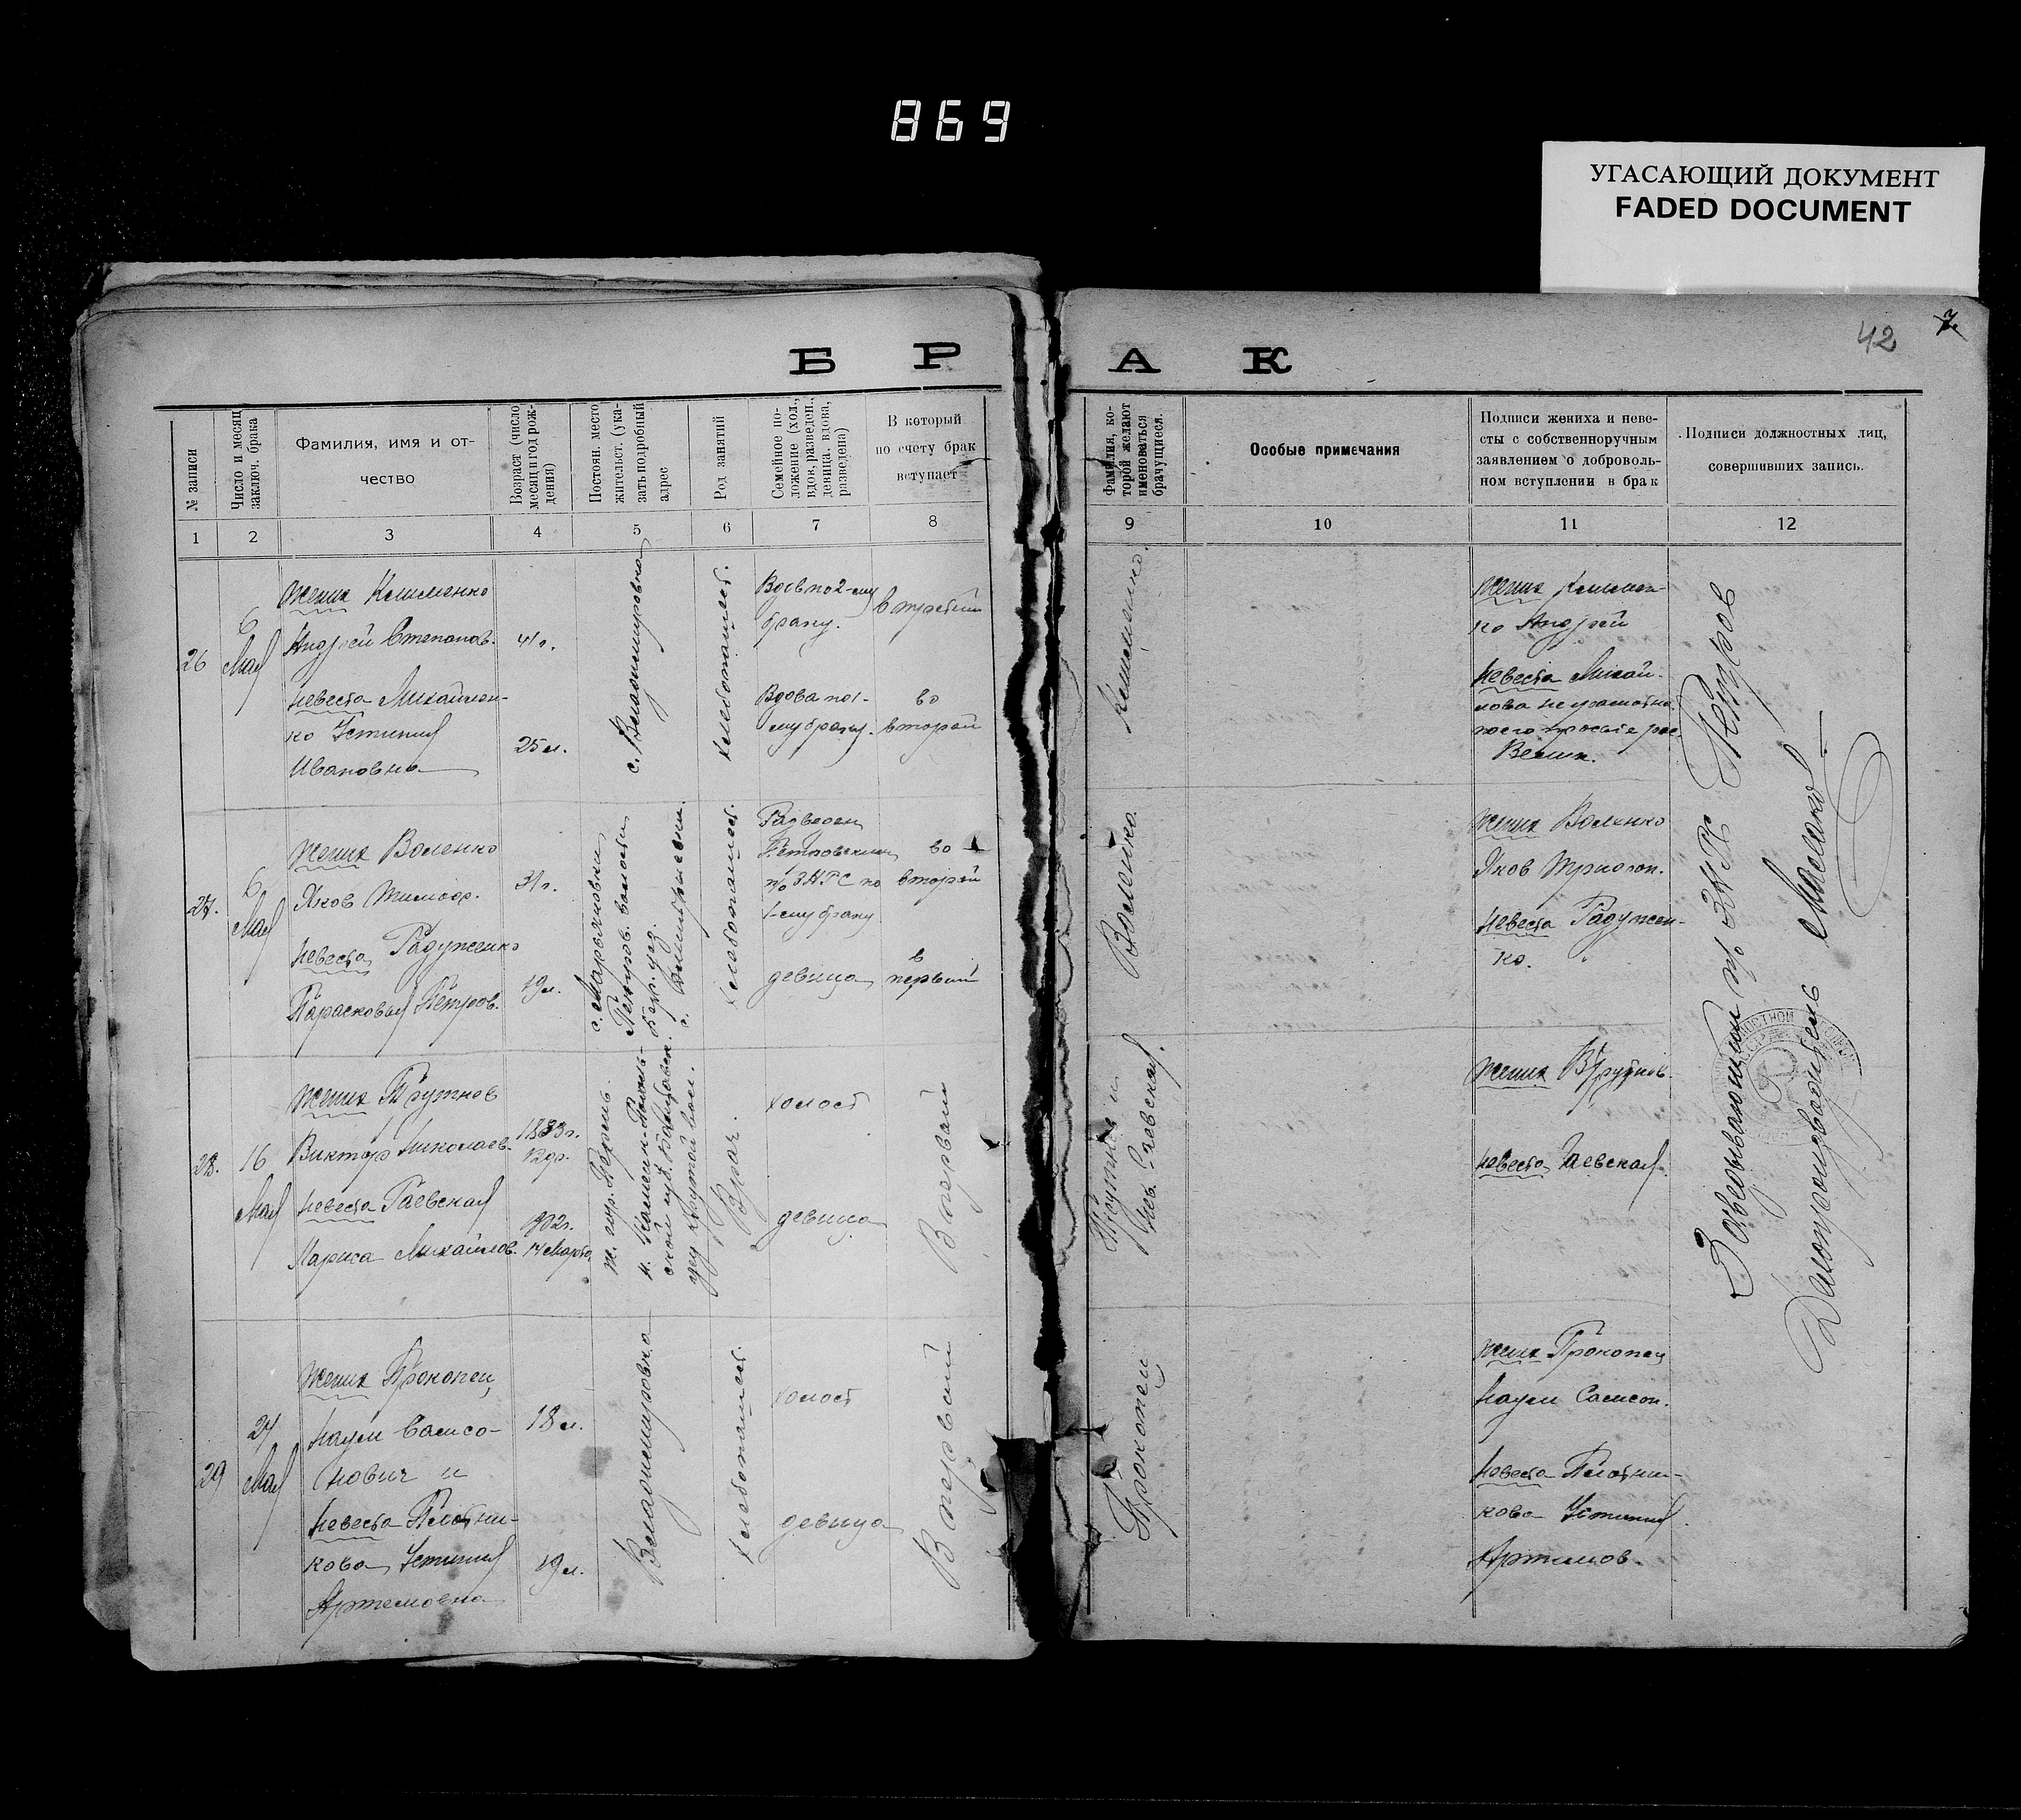 869
УГАСАЮЩИЙ ДОКУМЕНТ
FADED DOCUMENT
42
7.
Б Р А К
№ записи
Число и месяц
заключ. брака
Фамилия, имя и от-
чество
Возраст (число
месяц и год рож-
дения)
Постоян. место
жительст. (ука-
зать подробный
адрес
Род занятий
Семейное по-
ложение (хол.,
вдов. разведен.,
девица. вдова,
разведена)
В который
по счету брак
вступает
Фамилия, ко-
торой желают
именоваться
брачущиеся.
Особые примечания
Подписи жениха и неве-
сты с собственноручным
заявлением о доброволь-
ном вступлении в брак
Подписи должностных лиц,
совершивших запись.
1 2 3 4 5 6 7 8 9 10 11 12
26
6
Мая
жених Клименко
Андрей Степанов.
невеста Михайлен-
ко Устиния
Ивановна
41 г.
25 л.
с. Владимировка
хлебопашест.
Вдов по 2-му
браку.
Вдова по 1-
му браку.
в третий
во
второй
Клименко.
жених Климен-
ко Андрей
невеста Михай-
лова неграмотна
Велик.
27.
6
Мая
жених Воленко
Яков Тимоф.
невеста Радченко
Парасковья Петров.
31 г.
19 л.
с. Марьяновки
хлебопашест.
Разведен
Петровским
п/о ЗАГС по
1-му браку
девица
во
второй
в
первый
Воленко.
жених Воленко
Яков
невеста
ко.
28.
16
Мая
жених Трутнев
Виктор Николаев.
невеста Раевская
Лариса Михайлов.
1883 г.
1902 г.
14 Марта
ж. гор. Пермь.
Врач.
холост
девица
В первый
Трутнев и
нев. Раевская.
жених Трутнев.
невеста Раевская.
29
27
Мая
жених Прокопец
Наум Самсо-
нович и
невеста Плотни-
кова Устиния
Артемовна
18 л.
19 л.
Владимировка
хлебопашест.
холост
девица
В первый
Прокопец
жених Прокопец
Наум Самсон.
невеста Плотни-
кова Устиния
Артимов.
Заведывающий п/о ЗАГС Петров
Делопроизводитель